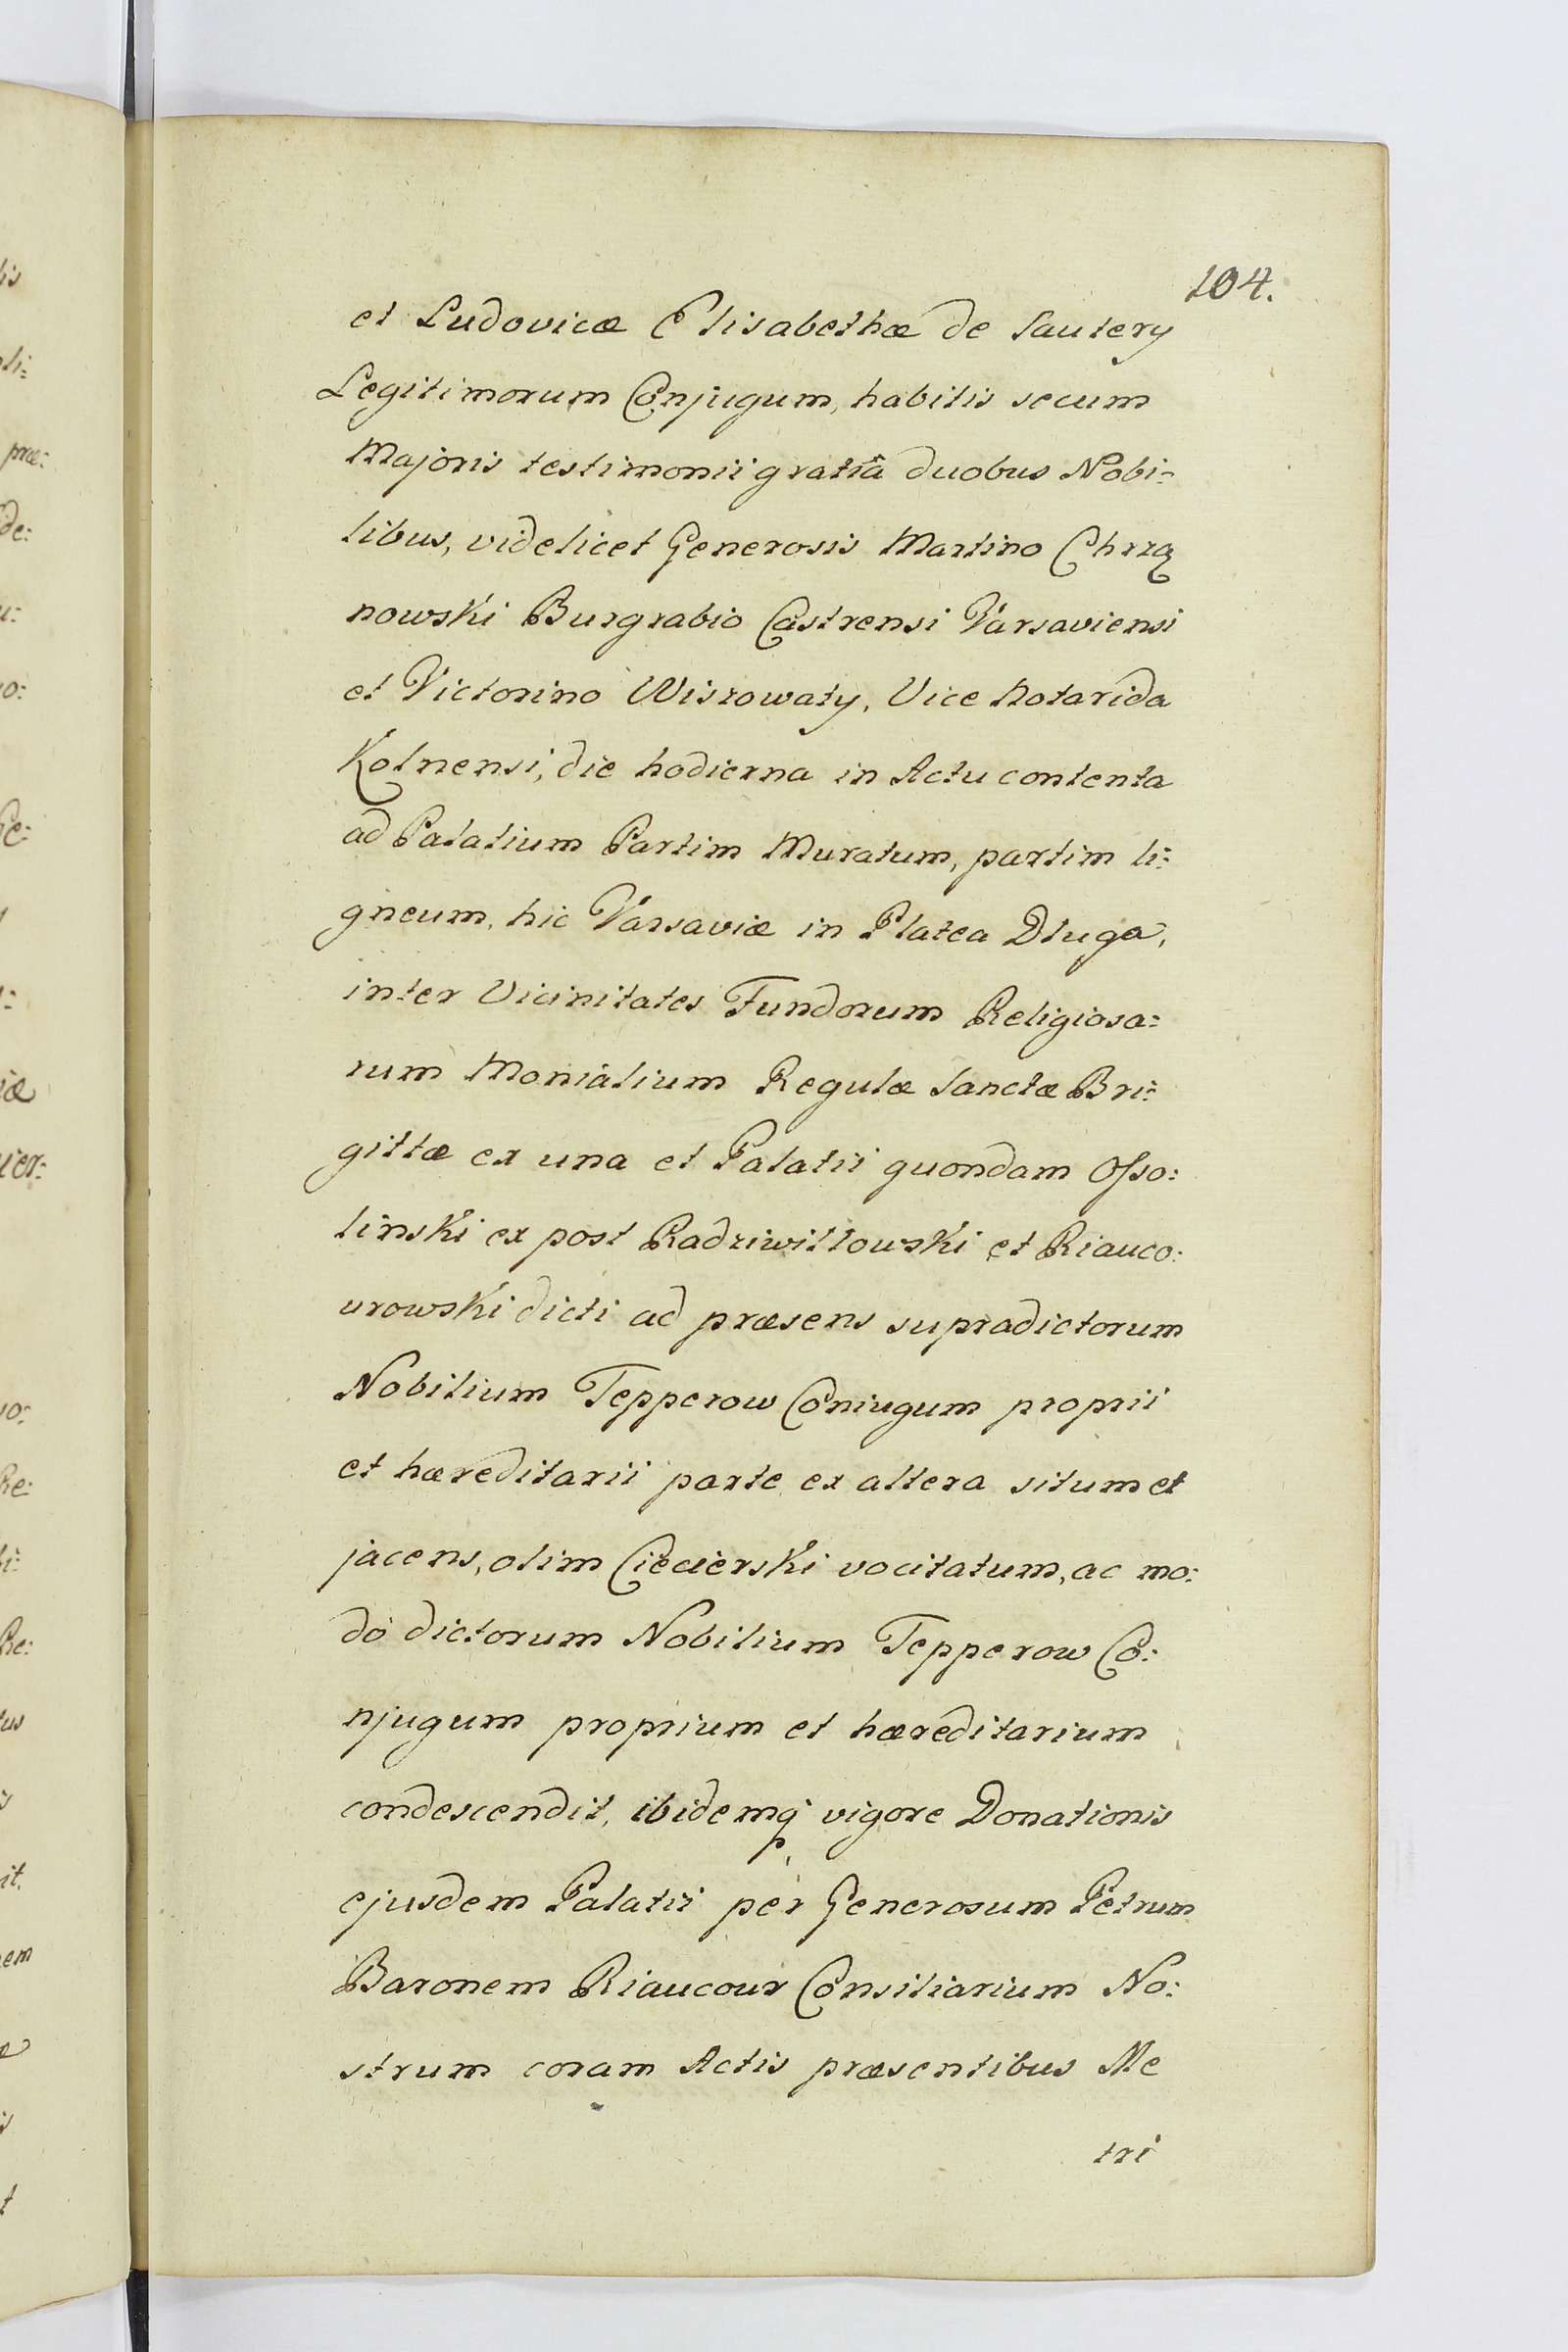 104.
et Ludovicæ Elisabethæ de Sautery
Legitimorum Conjugum, habitis secum
Majoris testimonii gratiâ duobus Nobi=
libus, videlicet Generosis Martino Chrzą
nowski Burgrabio Castrensi Varsaviensi
et Victorino Wiszowaty, Vice Notarida
Kolnensi, die hodierna in Actu contenta
ad Palatium Partim Muratum, partim li=
gneum, hic Varsaviæ in Platea Długa,
inter Vicinitates Fundorum Religiosa=
rum Monialium Regulæ Sanctæ Bri=
gittæ ex una et Palatii quondam Osso:
linski ex post Radziwiłłowski et Riauco:
urowski dicti ad præsens supradictorum
Nobilium Tepperow Coniugum proprii
et hæreditarii parte ex altera situm et
jacens, olim Ciecierski vocitatum, ac mo:
do dictorum Nobilium Tepperow Co:
njugum proprium et hæreditarium
condescendit, ibidemq vigore Donationis
ejusdem Palatii per Generosum Petrum
Baronem Riaucour Consiliarium No:
strum coram Actis præsentibus Me
tri
lis
oli:
præ:
de:
u:
io:
Ge:
iæ
uer:
io:
Re:
bi:
Re:
tus
is
it.
nem